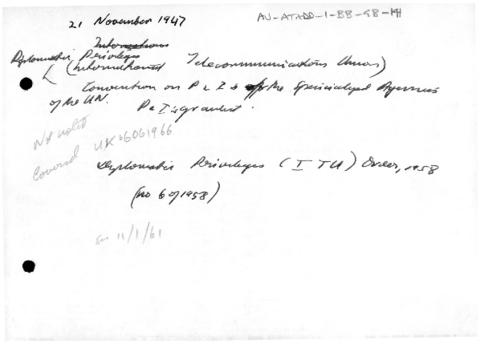 21 November 1947
AU-ATADD-1-BB-98-
Diplomatic Privileges
(International Telecommunications Union)
Convention on P & I of the Specialized Agencies
of the UN. P & I granted.
Not valid
Covered UK 6061966
Diplomatic Privileges (ITU) Order, 1958
(No 6 of 1958)
11/1/61